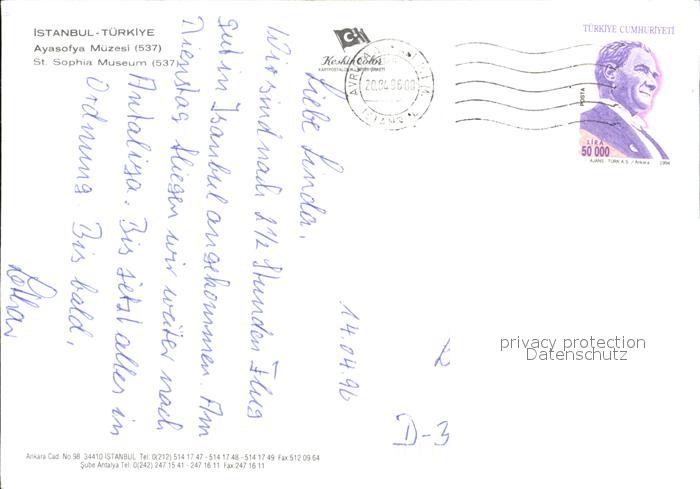 İSTANBUL - TÜRKİYE
Ayasofya Müzesi (537)
St. Sophia Museum (537)
Keskin Color
TÜRKİYE CUMHURİYETİ
POSTA
LİRA
50 000
AJANS - TÜRK A.Ş. / Ankara 1994
20.04.96
14.04.96
Liebe Linda,
Wir sind nach 2 1/2 Stunden Flug
gut in Istanbul angekommen. Am
Dienstag fliegen wir weiter nach
Antaliya. Bis jetzt alles in
Ordnung. Bis bald,
Lothar
D-3
privacy protection
Datenschutz
Ankara Cad. No 98 34410 İSTANBUL Tel: 0(212) 514 17 47 - 514 17 48 - 514 17 49 Fax:512 09 64
Şube Antalya Tel: 0(242) 247 15 41 - 247 16 11 Fax:247 16 11